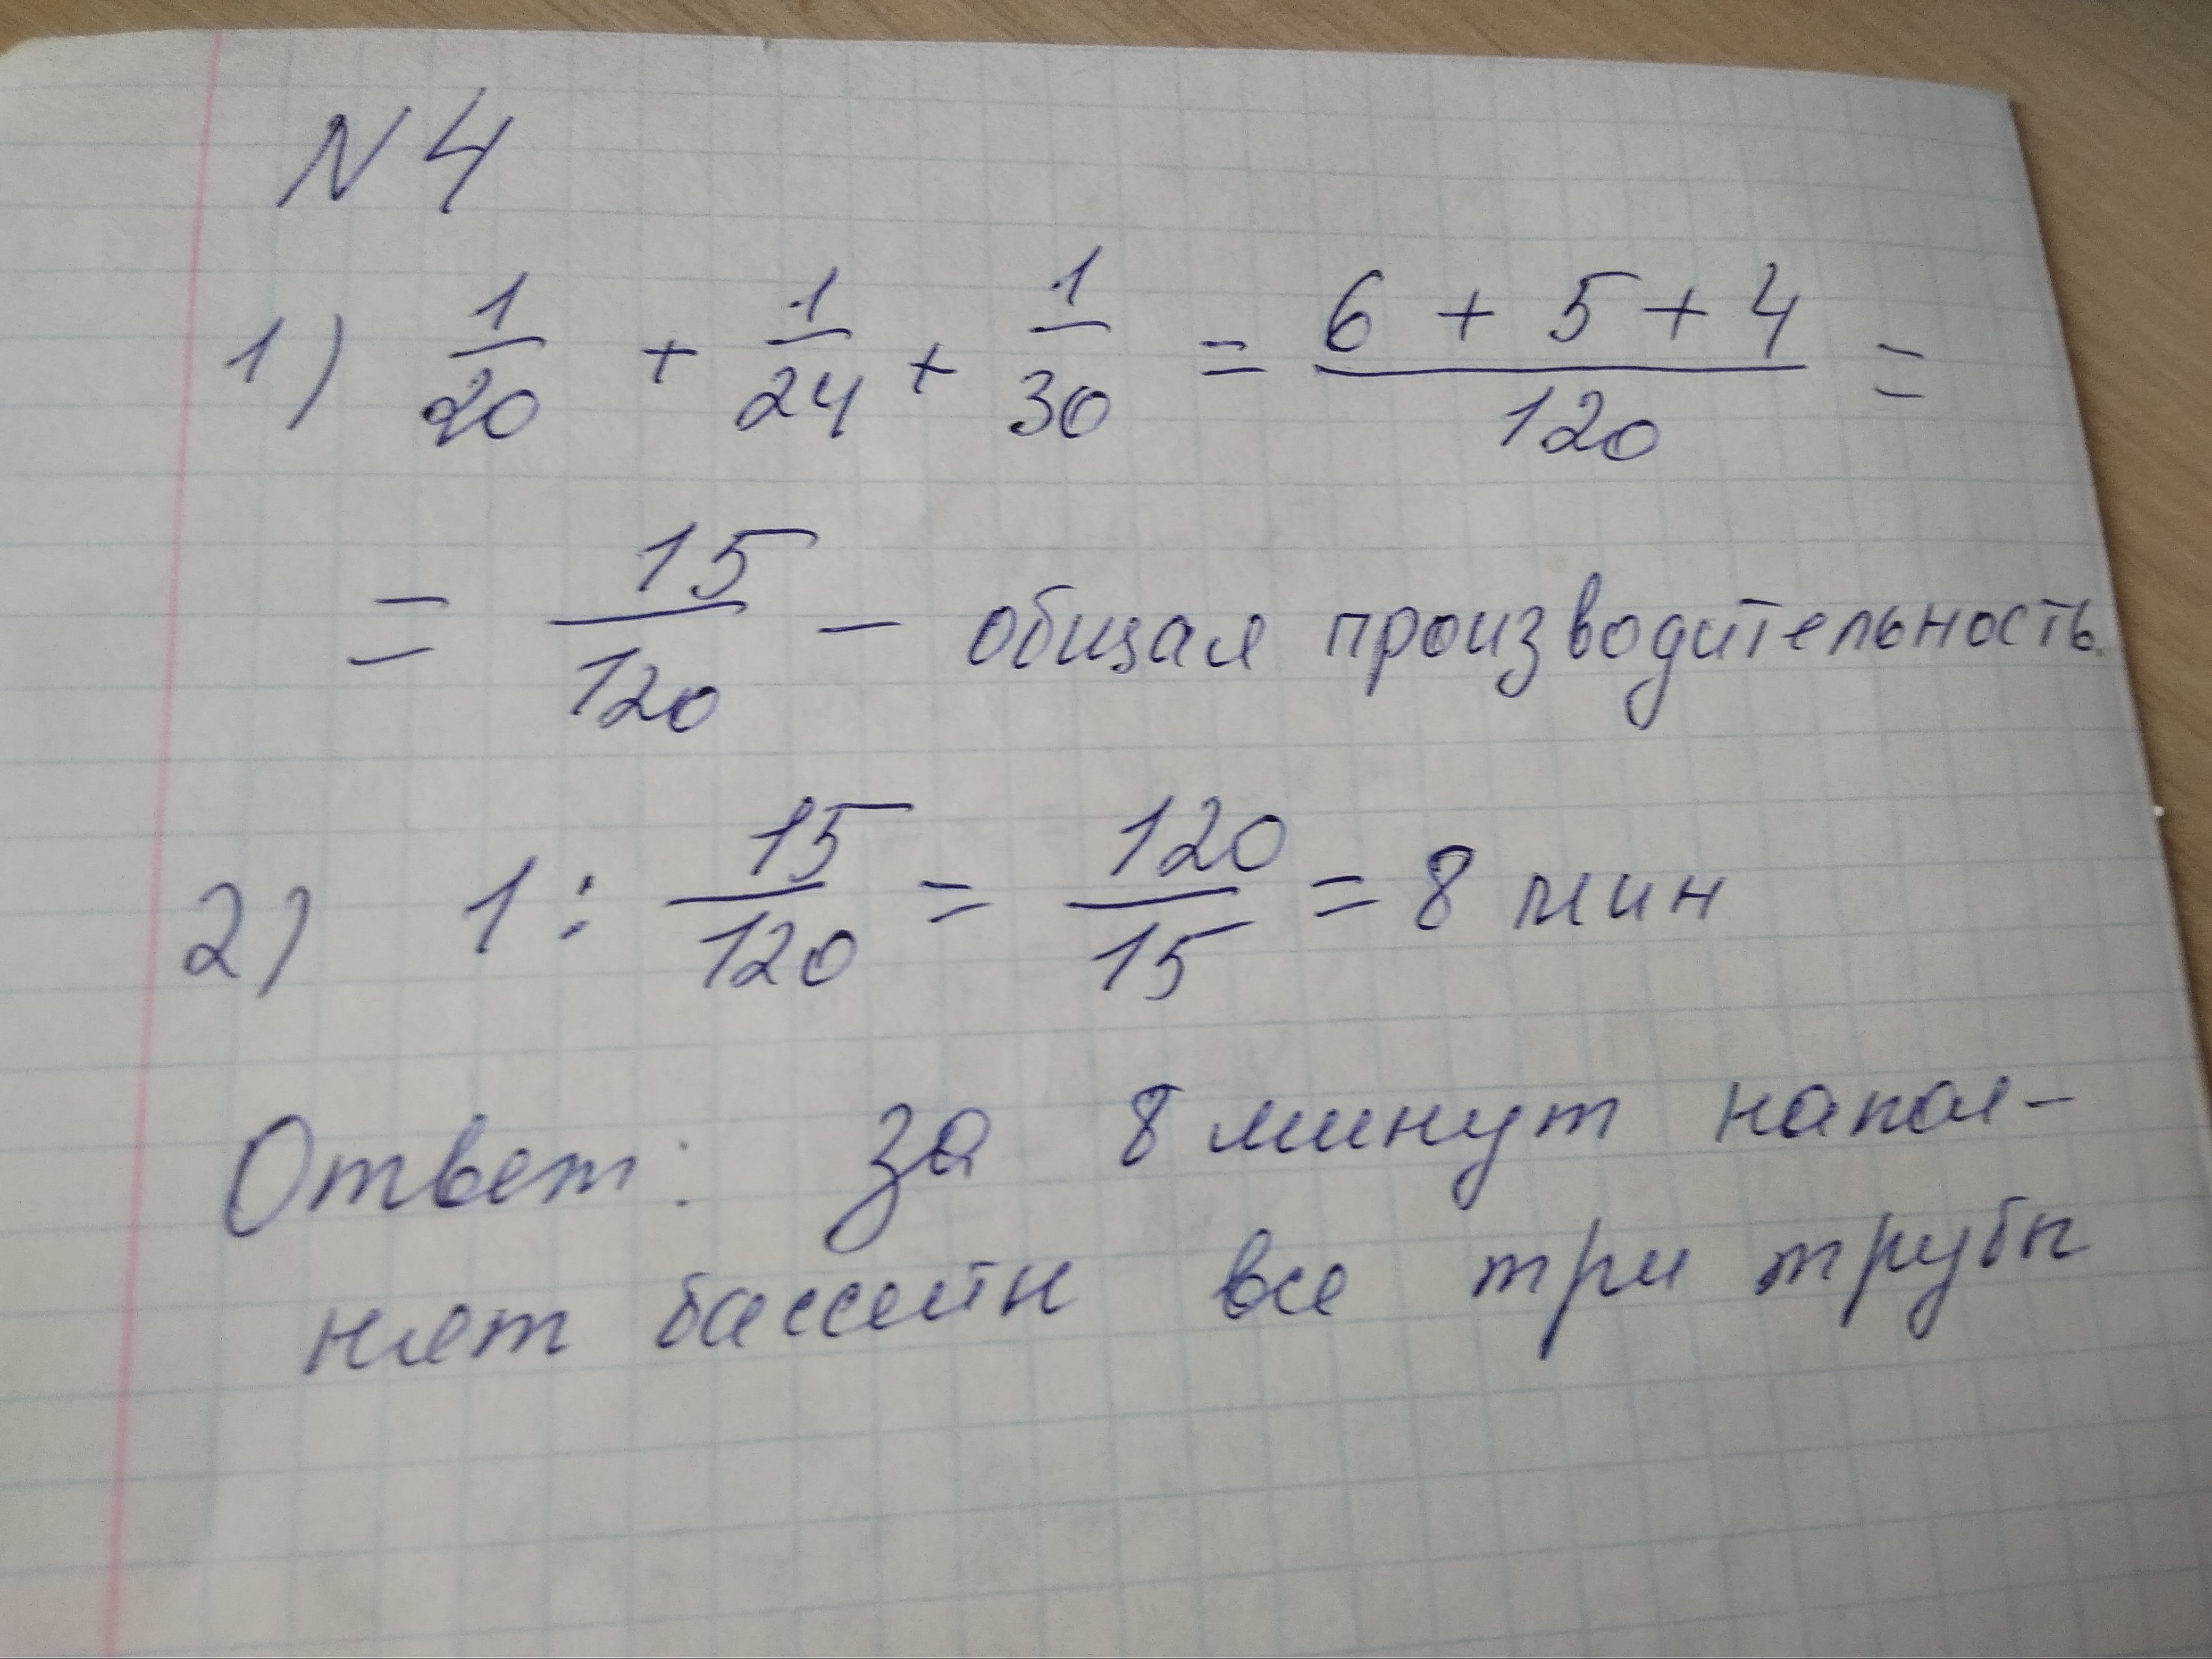 N 4
1) 1/20 + 1/24 + 1/30 = (6 + 5 + 4)/120 =
= 15/120 – общая производительность.
2) 1 : 15/120 = 120/15 = 8 мин
Ответ: за 8 минут напол-
няет бассейн все три трубы